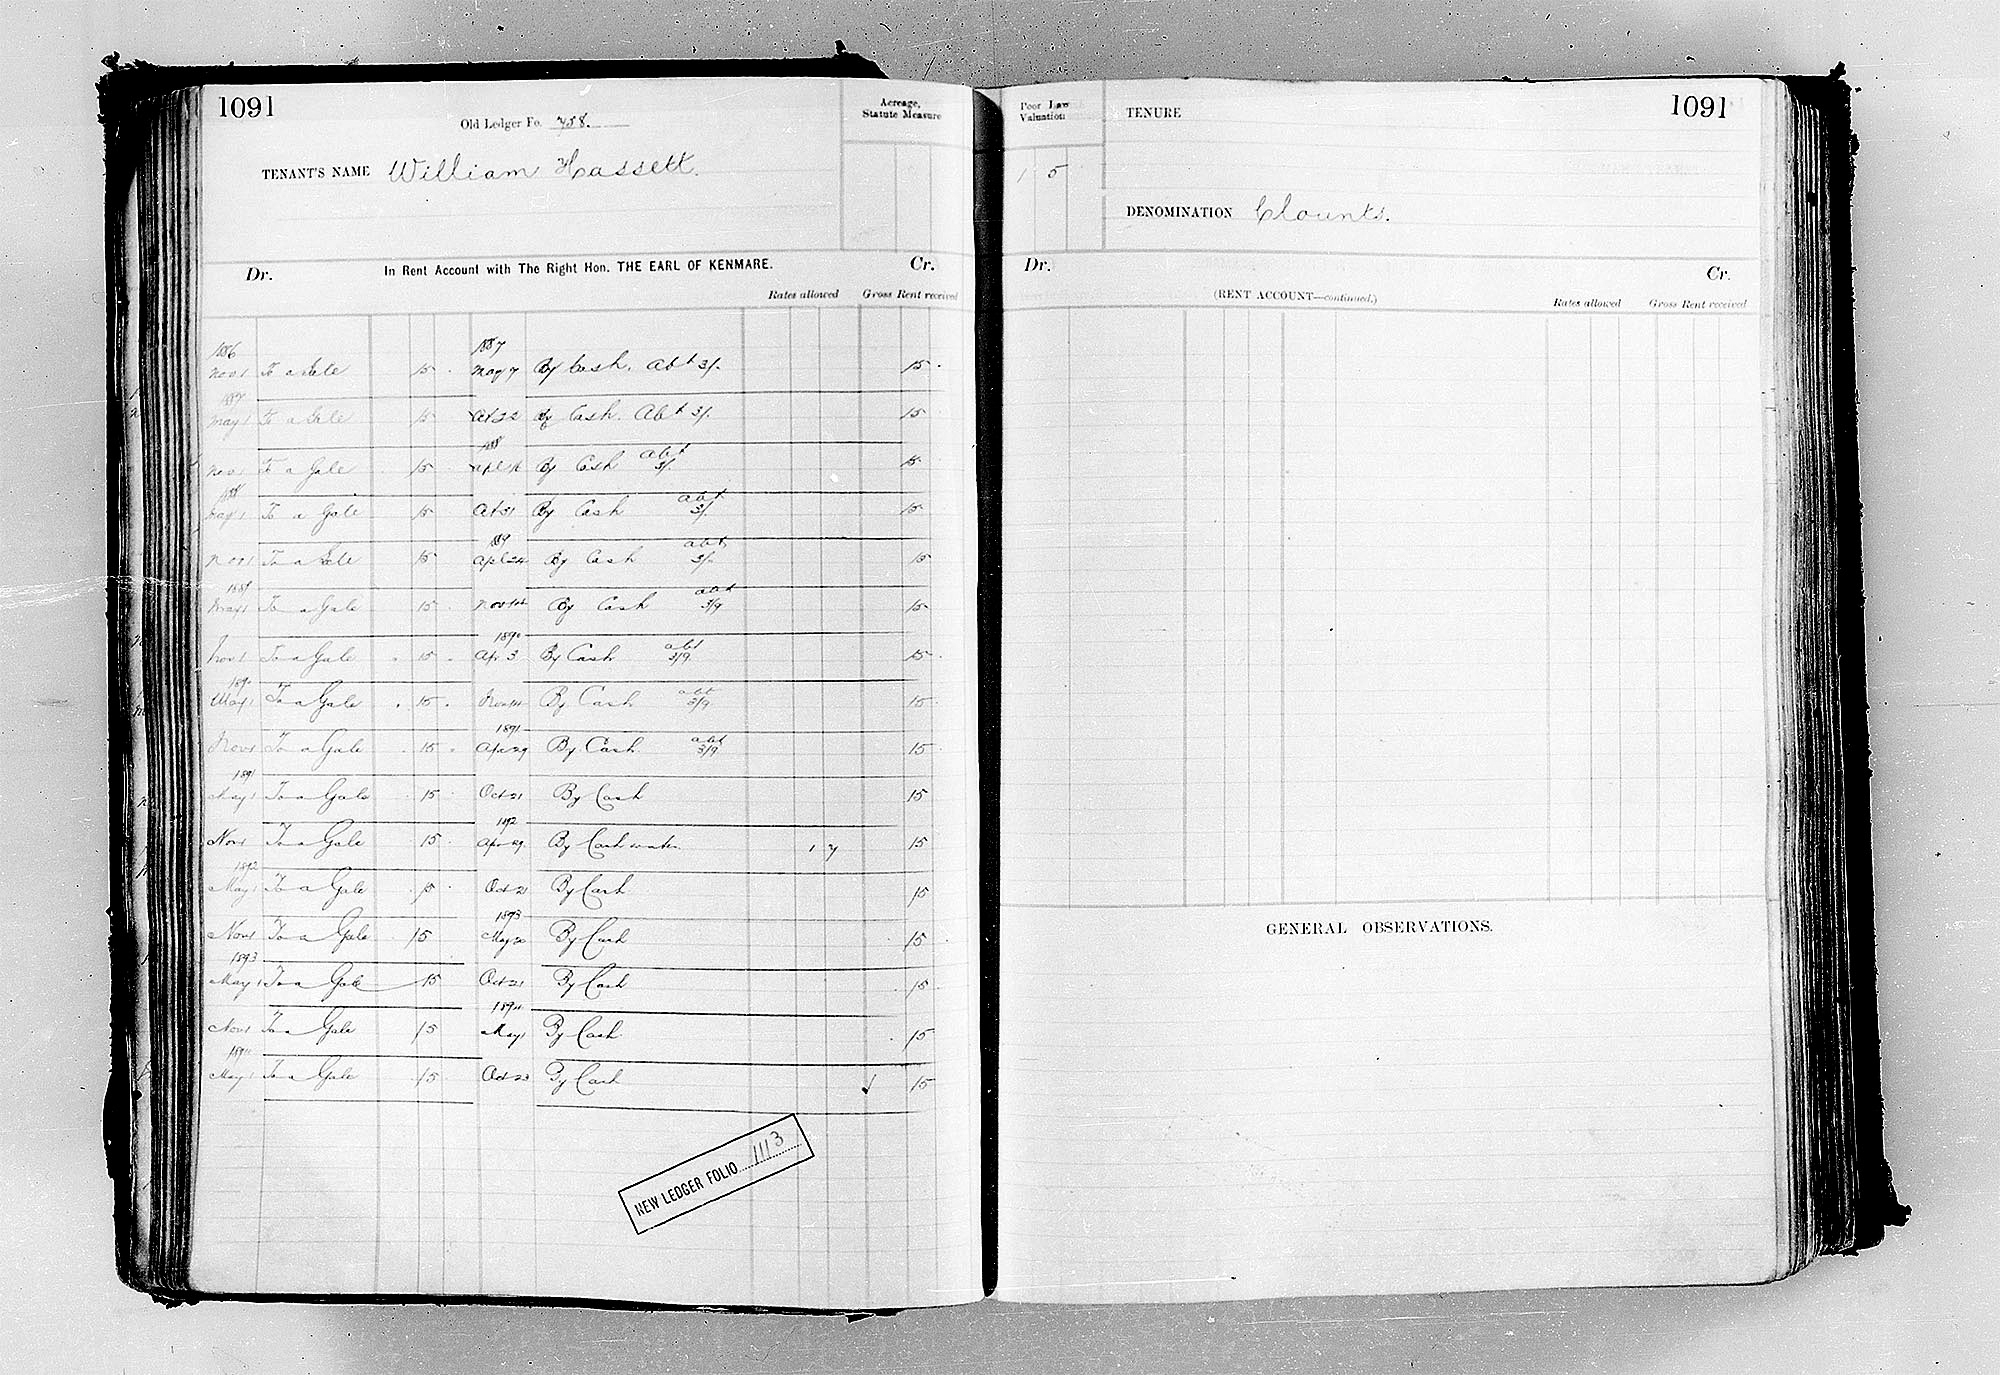 1091
Old Ledger Fo. 758.
Acreage,
Statute Measure
TENANT'S NAME William Hassett.
Dr. In Rent Account with The Right Hon. THE EARL OF KENMARE. Cr.
Rates allowed Gross Rent received
1886 1887
Nov 1 To a Gale 15 May 7 By Cash. Abt 3/. 15
1887
May 1 To a Gale 15 Oct 22 By Cash. Abt 3/. 15
1888
Nov 1 To a Gale 15 Apl By Cash abt 3/. 15
1888
May 1 To a Gale 15 Oct 31 By Cash abt 3/. 15
1889
Nov 1 To a Gale 15 Apl 24 By Cash abt 3/. 15
1889
May 1 To a Gale 15 Nov By Cash abt 3/9 15
1890
Nov 1 To a Gale 15 Apr 3 By Cash abt 3/9 15
1890
May 1 To a Gale 15 Nov By Cash abt 3/9 15
1891
Nov 1 To a Gale 15 Apr 29 By Cash abt 3/9 15
1891
May 1 To a Gale 15 Oct 21 By Cash 15
1892
Nov 1 To a Gale 15 Apr 29 By Cash 1 7 15
1892
May 1 To a Gale 15 Oct 21 By Cash 15
1893
Nov 1 To a Gale 15 May 20 By Cash 15
1893
May 1 To a Gale 15 Oct 21 By Cash 15
1894
Nov 1 To a Gale 15 May 1 By Cash 15
1894
May 1 To a Gale 15 Oct 23 By Cash 15
NEW LEDGER FOLIO 1113
Poor Law
Valuation
TENURE
1091
1 5
DENOMINATION Clounts.
Dr. Cr.
(RENT ACCOUNT—continued.)
Rates allowed Gross Rent received
GENERAL OBSERVATIONS.